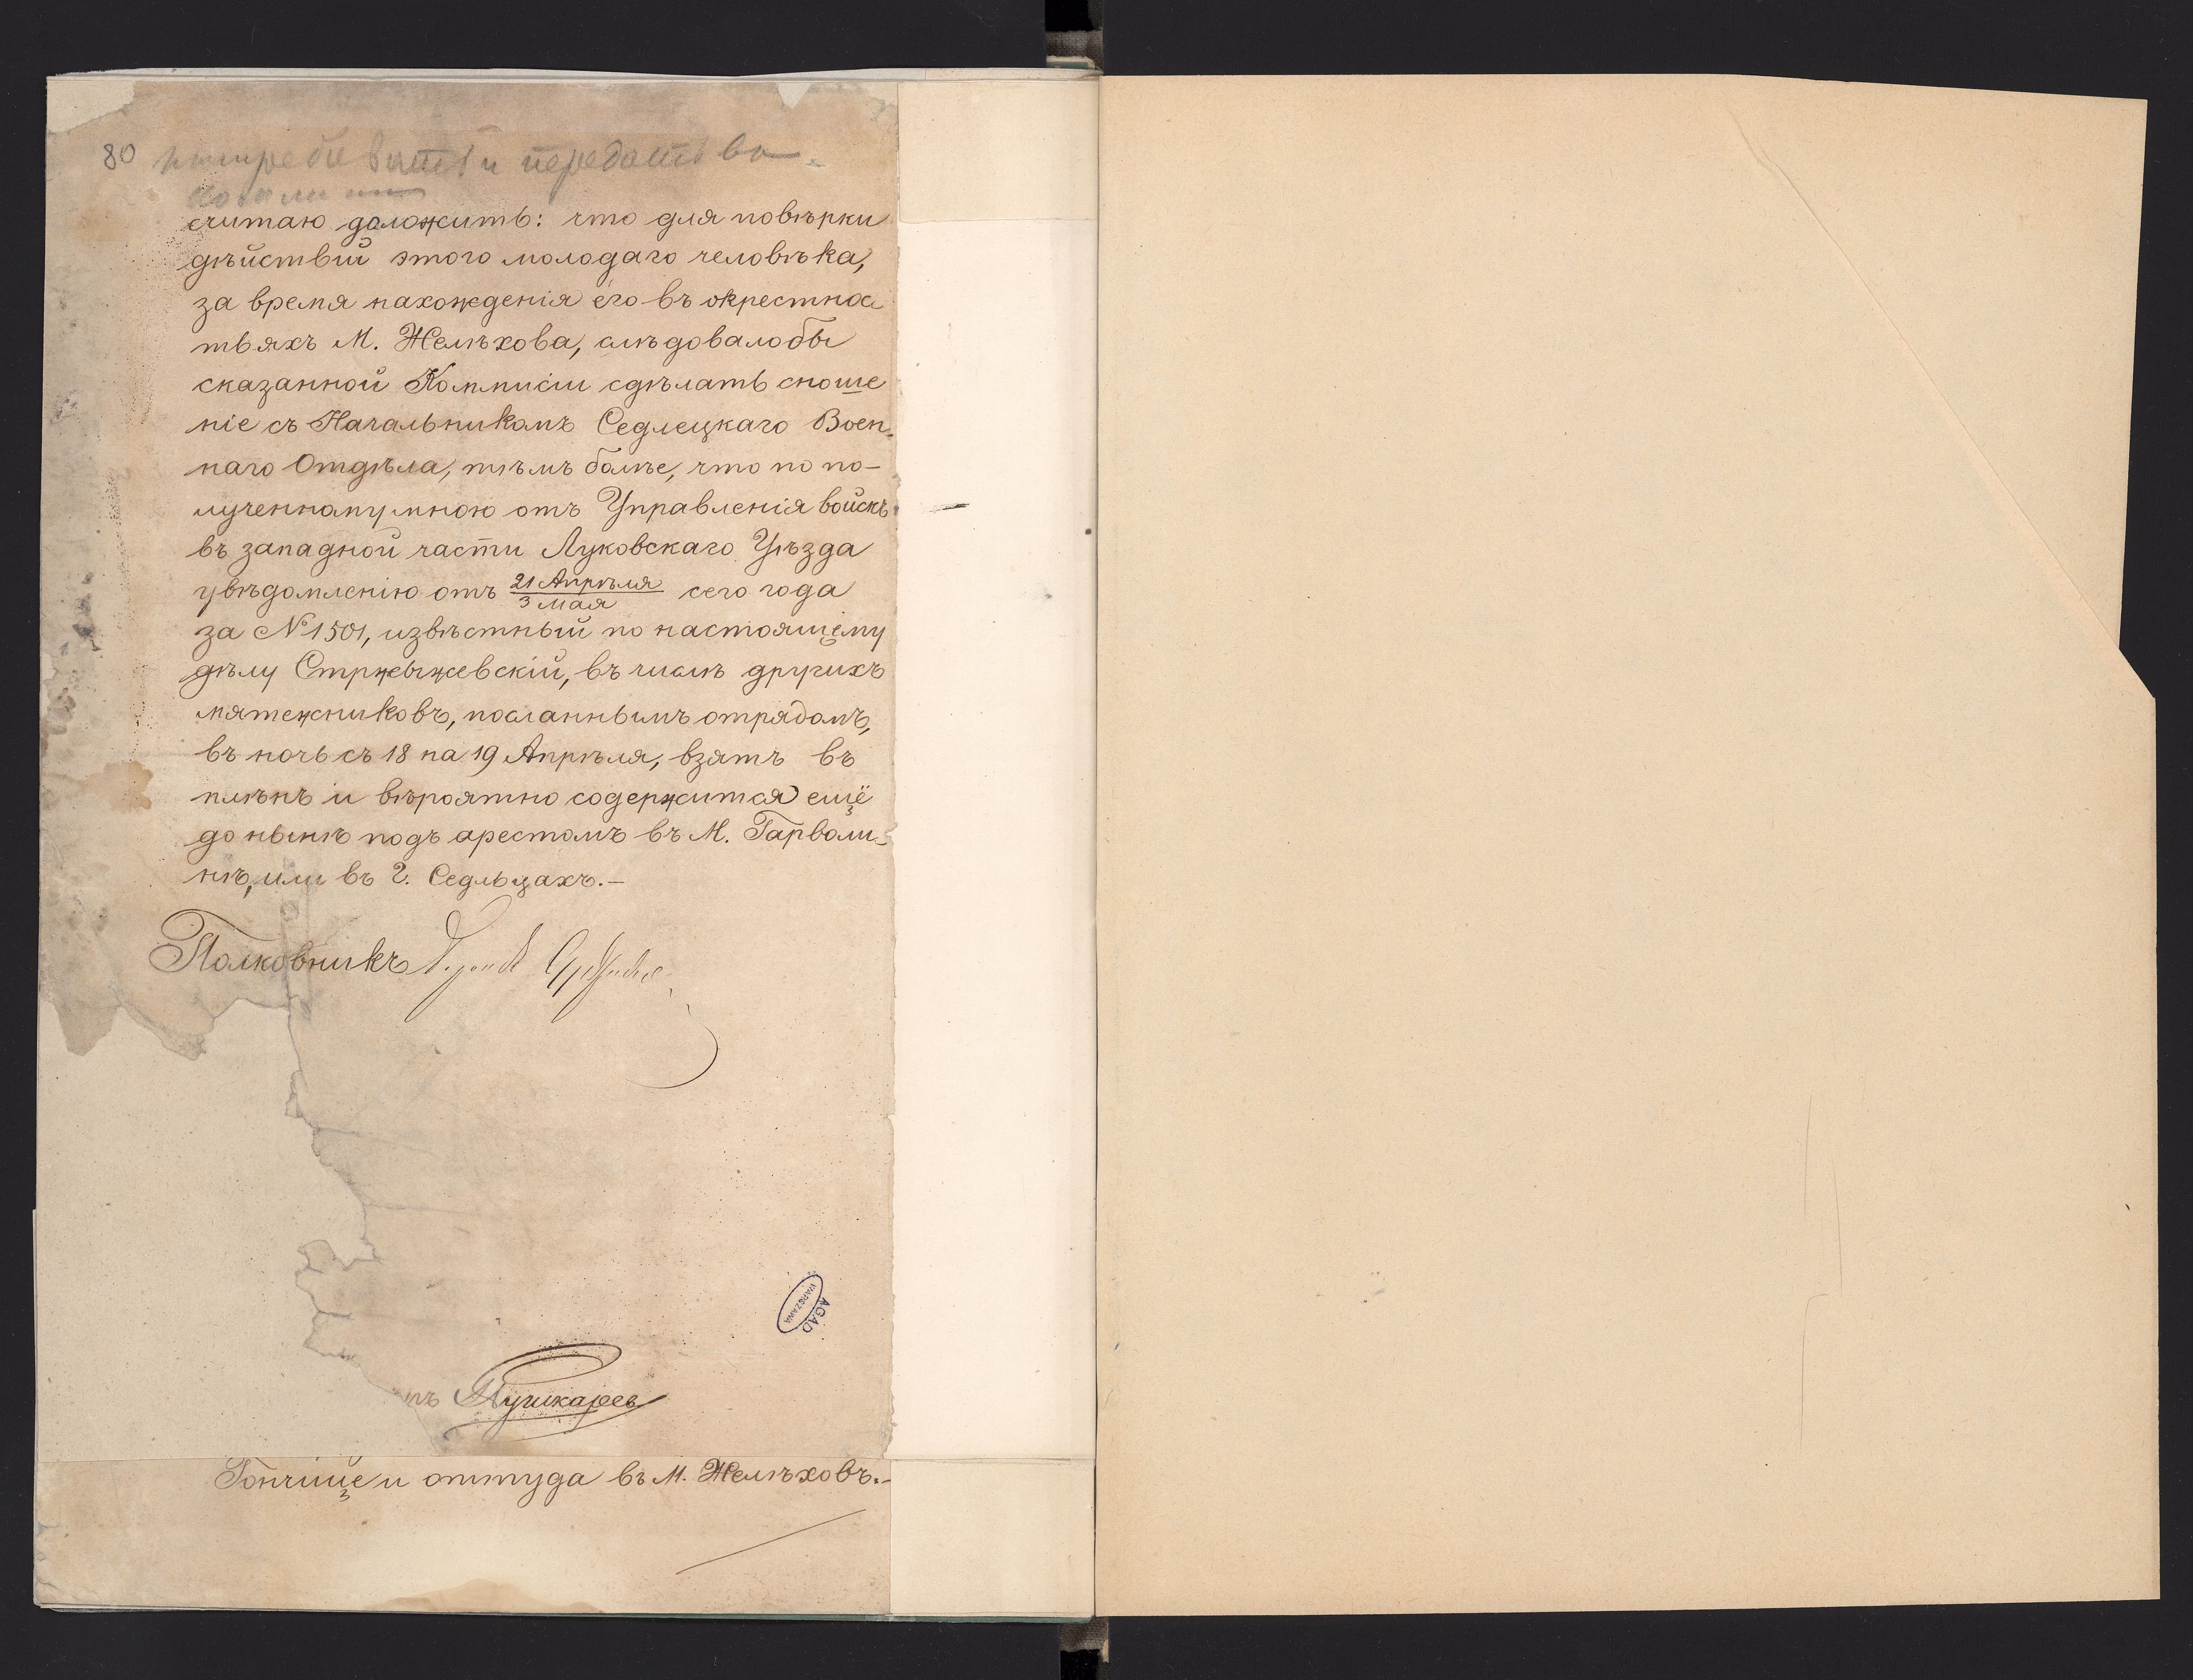 80 передать въ
считаю доложить: что для повѣрки
дѣйствій этого молодаго человѣка,
за время нахожденія его въ окрестнос
тьяхъ М. Желѣхова, слѣдовало бы
сказанной Коммисіи сдѣлать сноше
ніе съ Начальникомъ Седлецкаго Воен-
наго Отдѣла, тѣмъ болѣе, что по по-
лученному мною отъ Управленія войскъ
въ западной части Луковскаго Уѣзда
увѣдомленію отъ 21 Апрѣля / 3 мая сего года
за № 1501, извѣстный по настоящему
дѣлу Стржыжевскій, въ числѣ другихъ
мятежниковъ, посланнымъ отрядомъ,
въ ночь съ 18 на 19 Апрѣля, взятъ въ
плѣнъ и вѣроятно содержится ещё
до нынѣ подъ арестомъ въ М. Гарволи-
нѣ, или въ Г. Седльцахъ.–
Полковникъ
AGAD
WARSZAWA
Пушкарев
Гончице и оттуда въ М. Желѣховъ.–